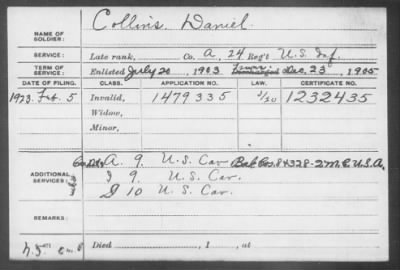 NAME OF SOLDIER: Collins Daniel
SERVICE: Late rank, Co. A, 24 Reg't U.S. Inf.
TERM OF SERVICE: Enlisted July 20, 1903 Discharged Dec. 23, 1905
DATE OF FILING. CLASS. APPLICATION NO. LAW. CERTIFICATE NO.
1923. Feb. 5 Invalid, 1479335 1232435
Widow,
Minor,
ADDITIONAL SERVICES: A. 9. U.S. Cav. 84328- U.S.A.
I 9 U.S. Cav.
I 10 U.S. Cav.
REMARKS:
Died , 1 , at